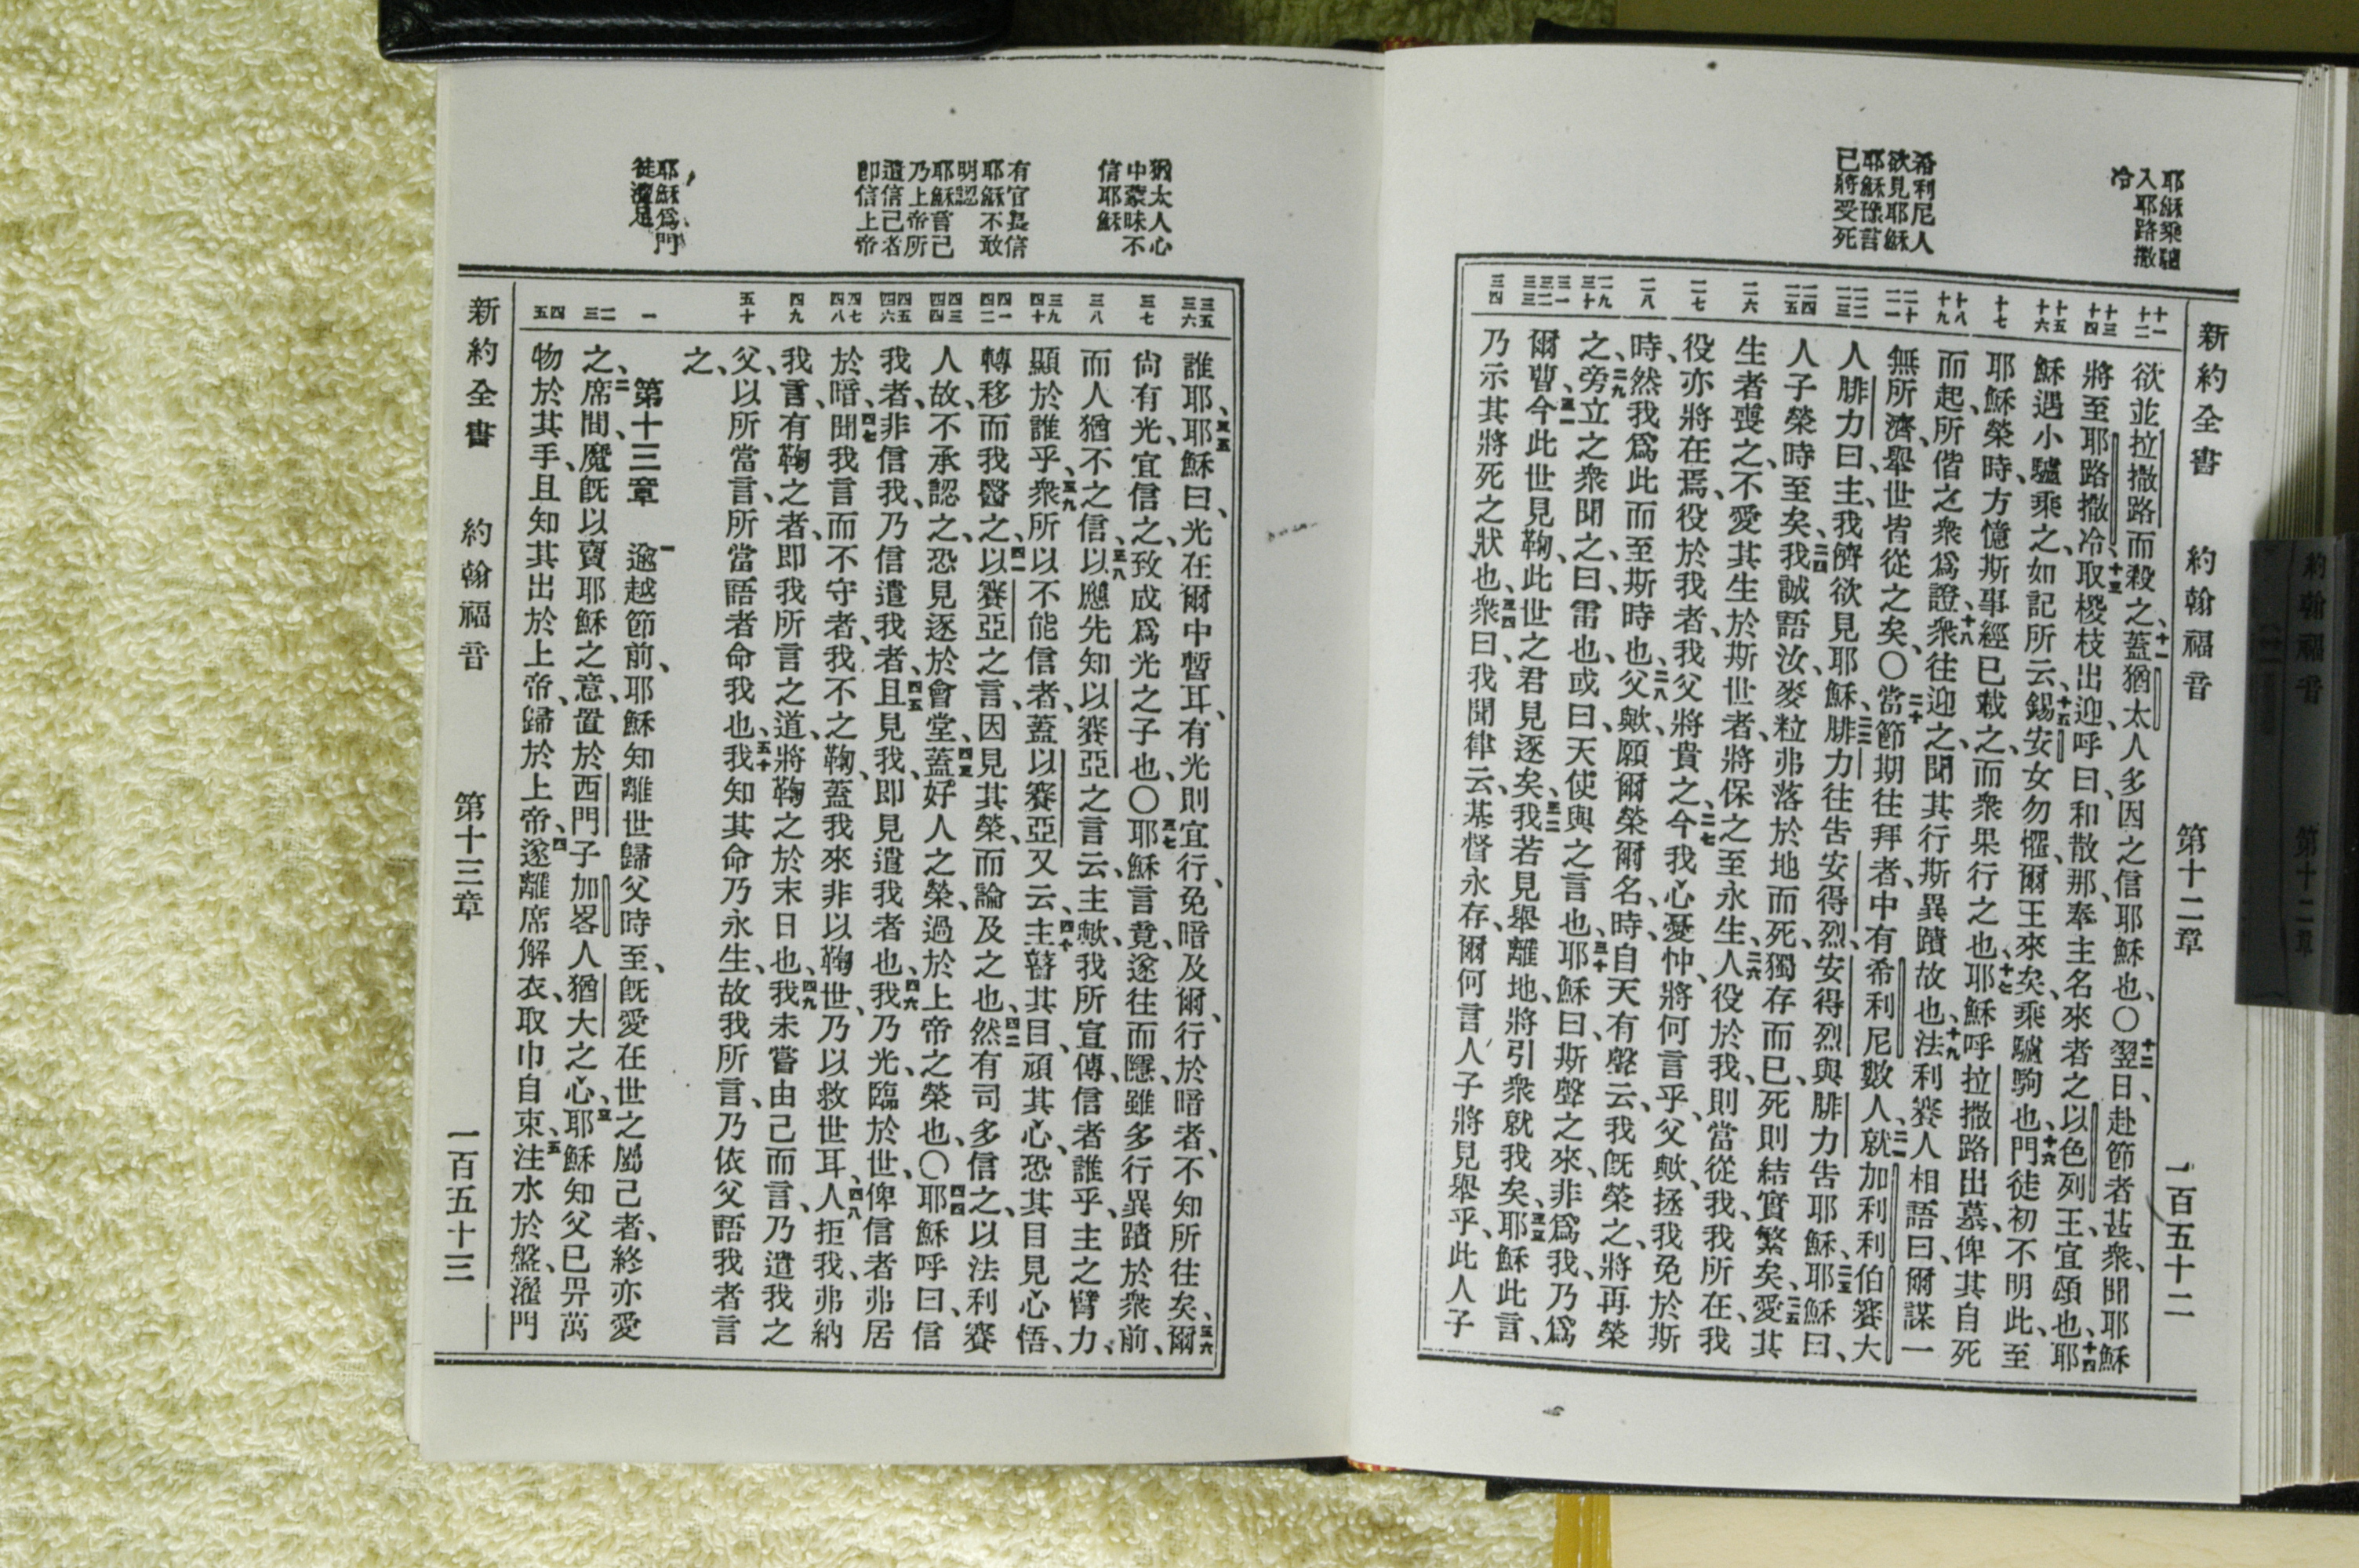 新約全書 約翰福音 第十二章 一百五十二
耶穌乘驢
入耶路撒
冷
希利尼人
欲見耶穌
耶穌豫言
已將受死
十一 十二
十三 十四
十五 十六
十七
十八 十九
二十 二一
二二 二三
二四 二五
二六
二七
二八
二九 三十
三一 三二 三三
三四
欲並拉撒路而殺之、十一蓋猶太人多因之信耶穌也、〇十二翌日、赴節者甚衆、聞耶穌
將至耶路撒冷、十三取椶枝出迎、呼曰、和散那、奉主名來者之以色列王、宜頌也、十四耶
穌遇小驢、乘之、如記所云、十五錫安女勿懼、爾王來矣、乘驢駒也、十六門徒初不明此、至
耶穌榮時、方憶斯事經已載之、而衆果行之也、十七耶穌呼拉撒路出墓、俾其自死
而起、所偕之衆爲證、十八衆往迎之、聞其行斯異蹟故也、十九法利賽人相語曰、爾謀一
無所濟、舉世皆從之矣、〇二十當節期往拜者、中有希利尼數人、二一就加利利伯賽大
人腓力曰、主、我儕欲見耶穌、二二腓力往告安得烈、安得烈與腓力告耶穌、二三耶穌曰、
人子榮時至矣、二四我誠語汝、麥粒弗落於地而死、獨存而已、死則結實繁矣、二五愛其
生者喪之、不愛其生於斯世者、將保之至永生、二六人役於我、則當從我、我所在、我
役亦將在焉、役於我者、我父將貴之、二七今我心憂忡、將何言乎、父歟、拯我免於斯
時、然我爲此而至斯時也、二八父歟、願爾榮爾名、時、自天有聲云、我旣榮之、將再榮
之、二九旁立之衆聞之、曰雷也、或曰、天使與之言也、三十耶穌曰、斯聲之來、非爲我、乃爲
爾曹、三一今此世見鞫、此世之君見逐矣、三二我若見舉離地、將引衆就我矣、三三耶穌此言、
乃示其將死之狀也、三四衆曰、我聞律云、基督永存、爾何言人子將見舉乎、此人子
猶太人心
中蒙昧不
信耶穌
有官長信
耶穌不敢
明認
耶穌言己
乃上帝所
遣信己者
卽信上帝
耶穌爲門
徒濯足
三五 三六
三七
三八
三九 四十
四一 四二
四三 四四
四五 四六
四七 四八
四九
五十
一
二 三
四 五
誰耶、三五耶穌曰、光在爾中暫耳、有光則宜行、免暗及爾、行於暗者、不知所往矣、三六爾
尙有光、宜信之、致成爲光之子也、〇三七耶穌言竟、遂往而隱、雖多行異蹟於衆前、
而人猶不之信、三八以應先知以賽亞之言云、主歟、我所宣傳、信者誰乎、主之臂力、
顯於誰乎、三九衆所以不能信者、蓋以賽亞又云、四十主瞽其目、頑其心、恐其目見心悟、
轉移而我醫之、四一以賽亞之言、因見其榮、而論及之也、四二然有司多信之、以法利賽
人故、不承認之、恐見逐於會堂、四三蓋好人之榮、過於上帝之榮也、〇四四耶穌呼曰、信
我者、非信我、乃信遣我者、四五且見我、卽見遣我者也、四六我乃光、臨於世、俾信者弗居
於暗、四七聞我言而不守者、我不之鞫、蓋我來非以鞫世、乃以救世耳、四八人拒我、弗納
我言、有鞫之者、卽我所言之道、將鞫之於末日也、四九我未嘗由己而言、乃遣我之
父、以所當言、所當語者命我也、五十我知其命乃永生、故我所言、乃依父語我者言
之、
第十三章 一逾越節前、耶穌知離世歸父時至、旣愛在世之屬己者、終亦愛
之、二席間、魔旣以賣耶穌之意、置於西門子加畧人猶大之心、三耶穌知父已畀萬
物於其手、且知其出於上帝、歸於上帝、四遂離席解衣、取巾自束、五注水於盤、濯門
新約全書 約翰福音 第十三章 一百五十三